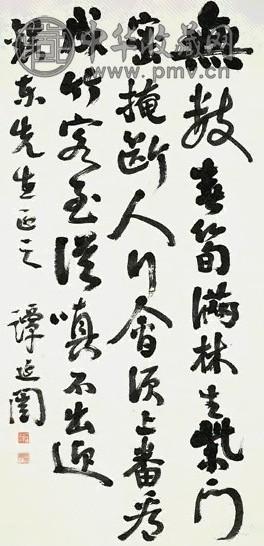 中华收藏网
www.pmv.cn
無數春筍滿林生柴門
密掩斷人行會須上番看
成竹客至從嗔不出迎
東先生正之
譚延闓